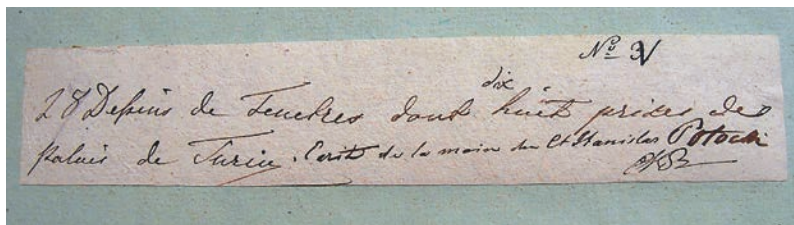 No 3V
dix
28 Dessins de Fenetres dont huit prises des
Palais de Turin. Ecrit de la main du Ct Stanislas Potocki